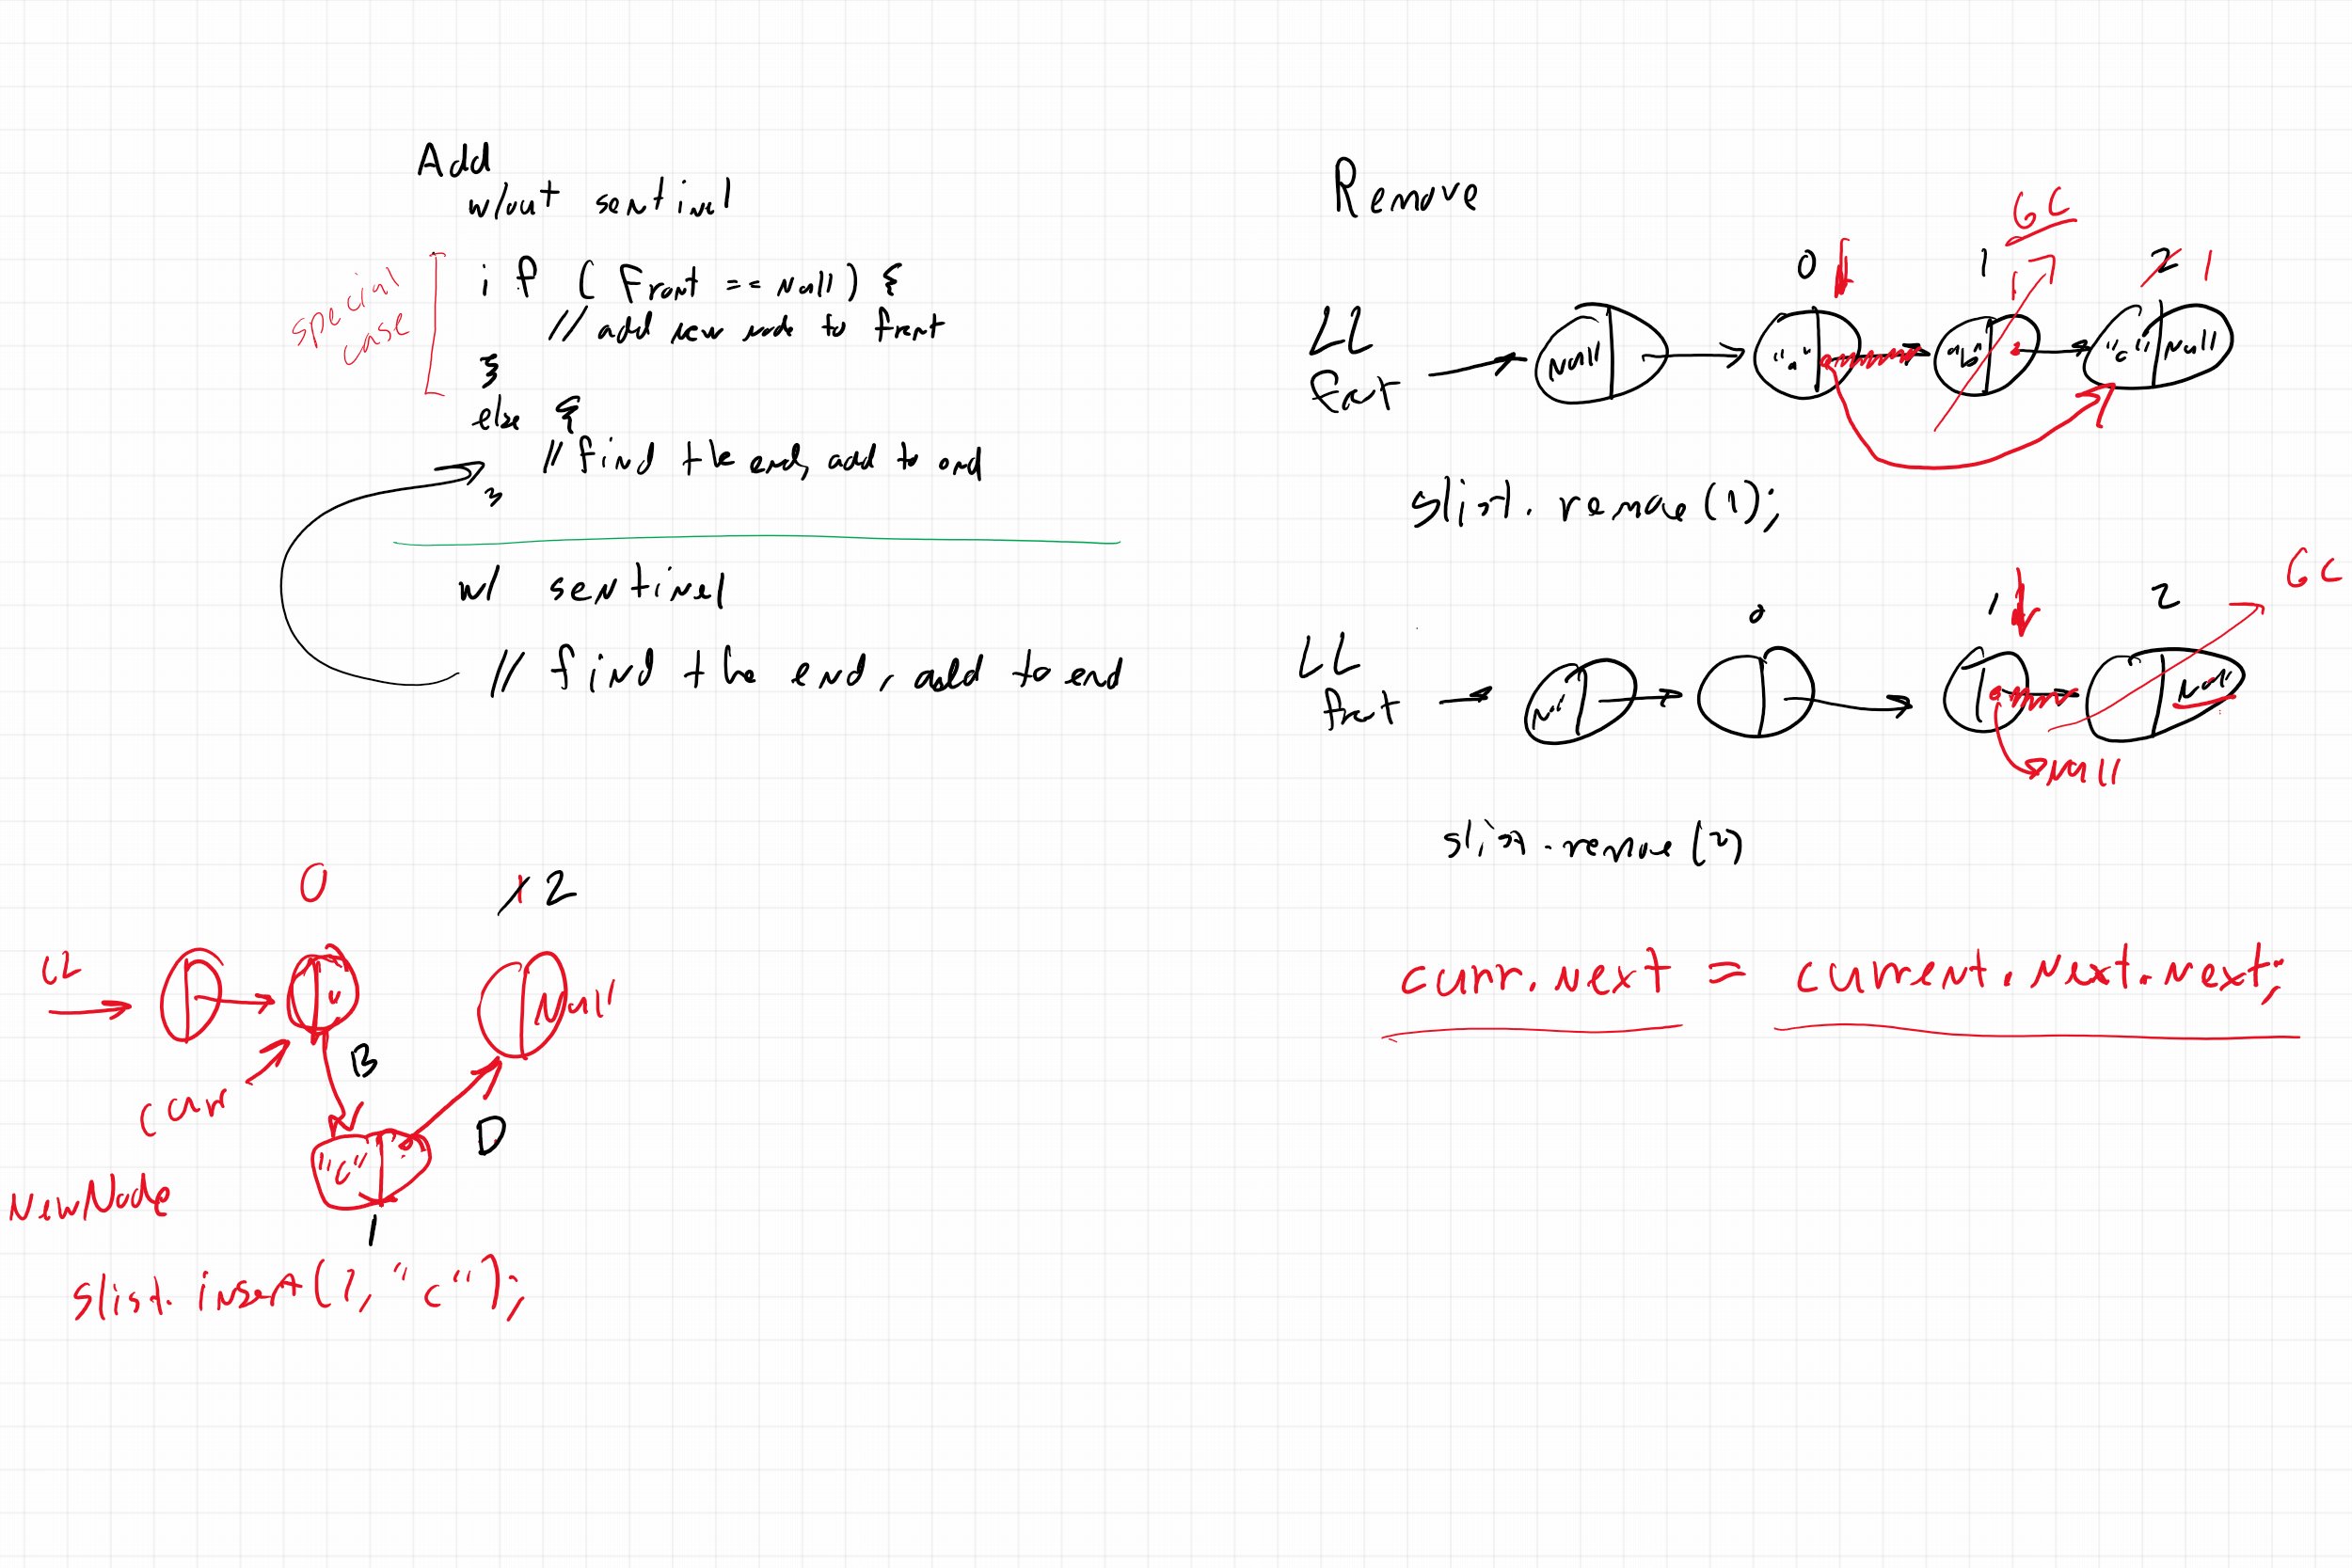 Add
w/out sentinel
special
case
if (Front == Null) {
// add new node to front
}
else {
// find the end, add to end
}
w/ sentinel
// find the end, add to end
0
1 2
LL
Null
curr
B
D
"c"
NewNode
1
slist.insert(1, "c");
Remove
GC
0 1 2 1
LL
front
Null "a" "b" "c" Null
slist.remove(1);
GC
0 1 2
LL
front
Null Null
Null
slist.remove(2)
curr.next = current.next.next;